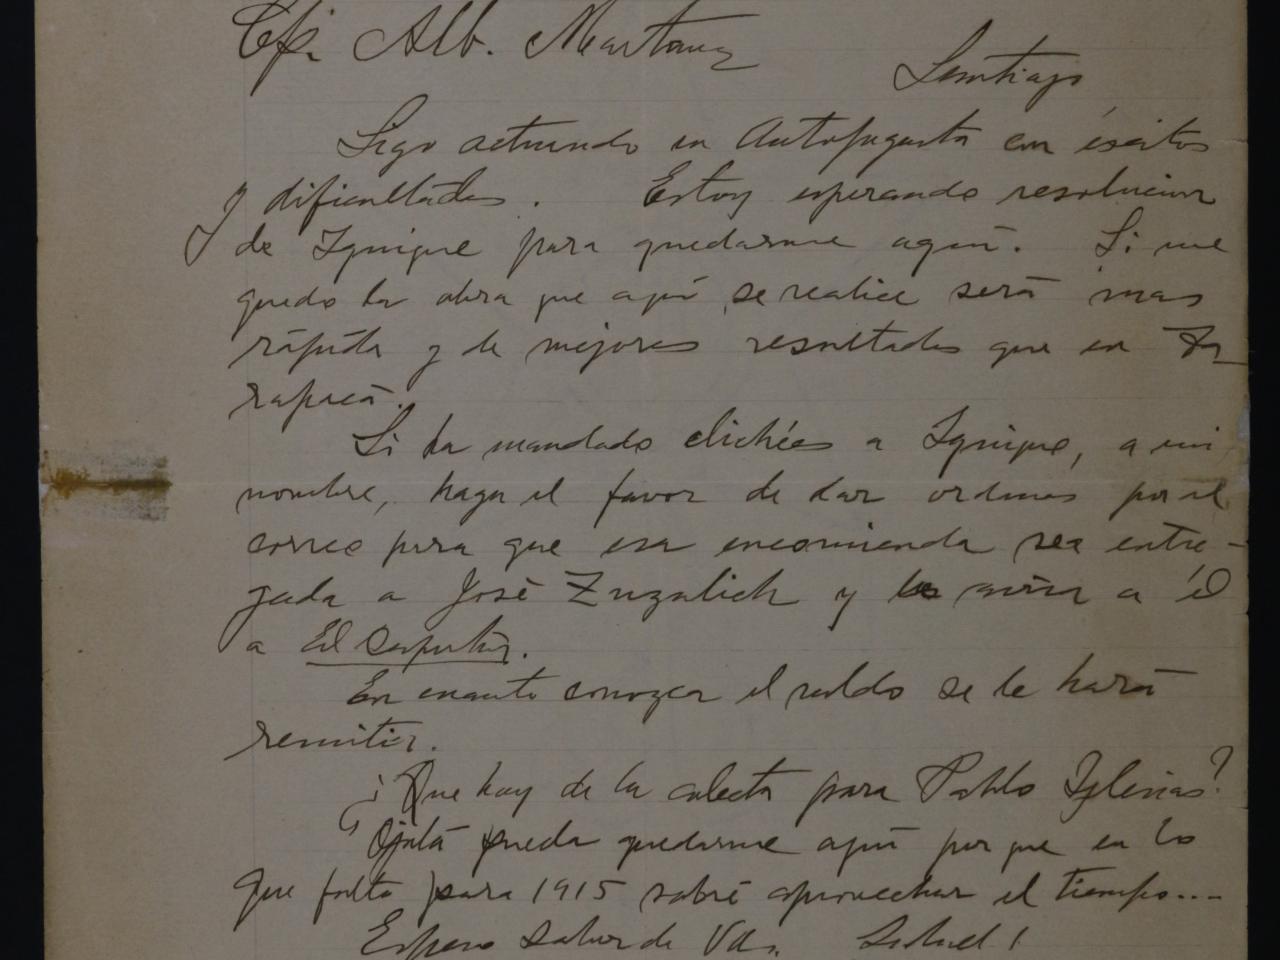 Alb. Martinez
Santiago
Sigo actuando en Antofagasta con éxitos
y dificultades. Estoy esperando resolucion
de Iquique para quedarme aquí. Si me
quedo la obra que aquí se realice será mas
rápida y de mejores resultados que en Ta
rapacá.
Si ha mandado clichées a Iquique, a mi
nombre, haga el favor de dar ordenes por el
correo para que esa encomienda sea entre-
gada a José Zuzulich y la avisa a él
a El Despertar.
En cuanto conozca el saldo se le hará
remitir.
¿Que hay de la colecta para Pablo Iglesias?
Ojalá pueda quedarme aquí por que en lo
que falta para 1915 sabré aprovechar el tiempo....
Espero saber de Uds. Salud!